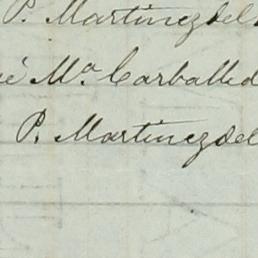 P. Martinez del
é Mª Carballed
P. Martinez del